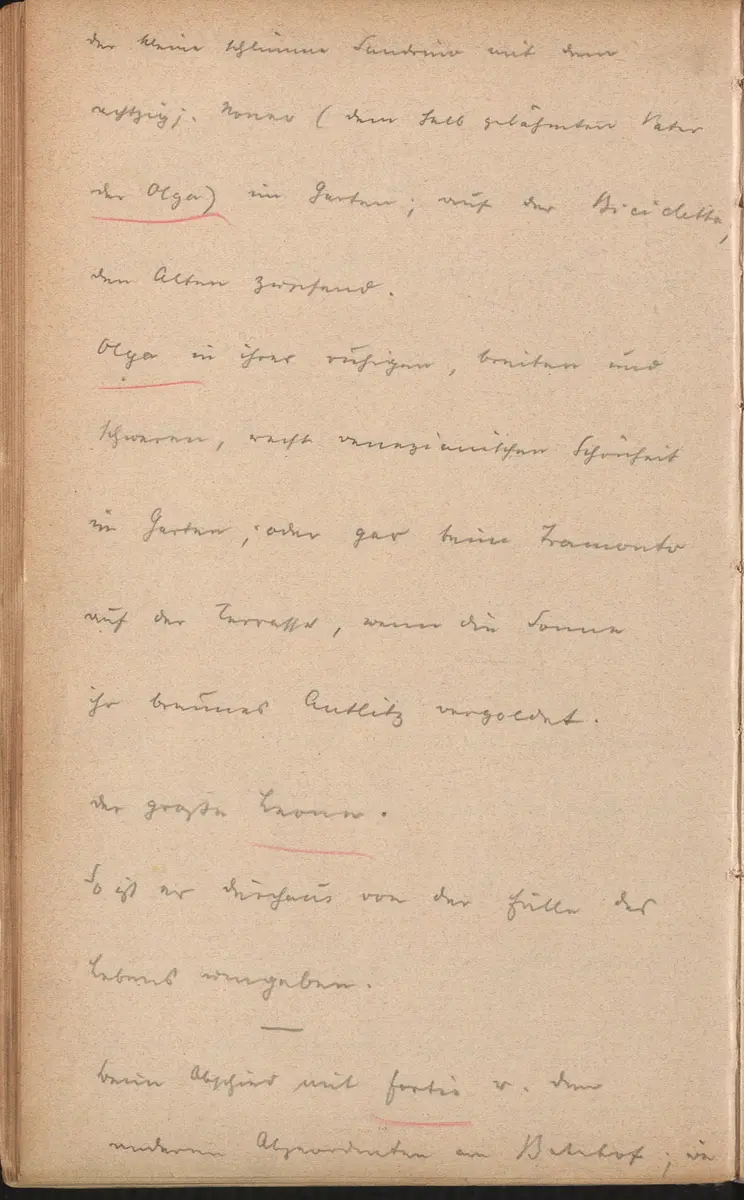 der kleine schlimme Sandrino mit dem
achtzigj. Nonno (dem halb gelähmten Vater
der Olga) im Garten; auf der Bicicletta,
den Alten
Olga in ihrer ruhigen, breiten und
schweren, recht venezianischen Schönheit
im Garten; oder gar beim Tramonto
auf der Terrasse, wenn die Sonne
ihr braunes Antlitz vergoldet.
der große Leone.
So ist er durchaus von der Fülle des
Lebens umgeben.
—
Beim Abschied mit Fortis u. den
anderen Abgeordneten am Bahnhof; wie